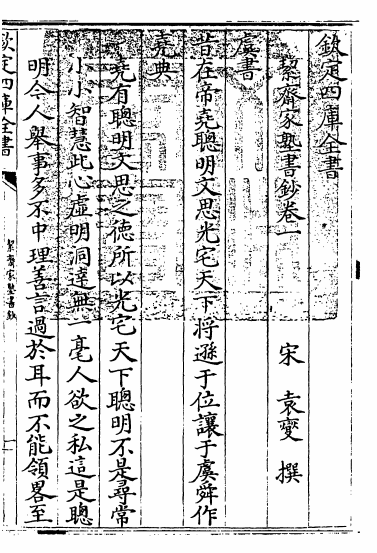 欽定四庫全書
絜齋家塾書鈔卷一
宋 袁燮 撰
虞書
昔在帝堯聰明文思光宅天下將遜于位讓于虞舜作
堯典
堯有聰明文思之德所以光宅天下聰明不是尋常
小小智慧此心虛明洞達無一毫人欲之私這是聰
明今人舉事多不中理善言過於耳而不能領畧至
欽定四庫全書
絜齋家塾書鈔
一